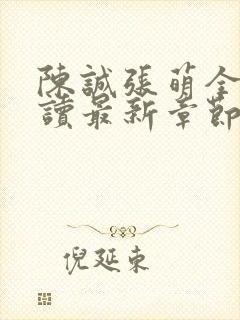 陳誠張萌全
讀最新章節
倪延東